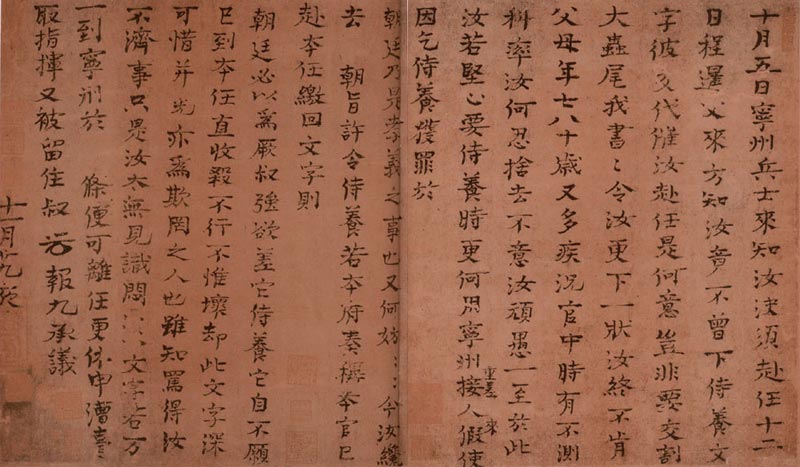 十月五日寧州兵士來知汝決須赴任十二
日程暹父來方知汝竟不曾下侍養文
字彼交代催汝赴任是何意豈非要交割
大蟲尾我書〻令汝更下一狀汝終不肯
父母年七八十歲又多疾況官中時有不測
科率汝何忍捨去不意汝頑愚一至於此
汝若堅心要侍養時更何用寧州接人重差來假使
因乞侍養獲罪於
朝廷乃是孝義之事也又何妨〻〻今汝纔
去 朝旨許令侍養若本府奏稱本官已
赴本任繳回文字則
朝廷必以為厥叔強欲差它侍養它自不願
已到本任直收殺不行不惟壞却此文字深
可惜并光亦為欺罔之人也雖知罵得汝
不濟事只是汝太無見識悶〻文字若万
一到寧州於 條便可離任更休申漕臺
取指揮又被留住叔 報九承議
十一月